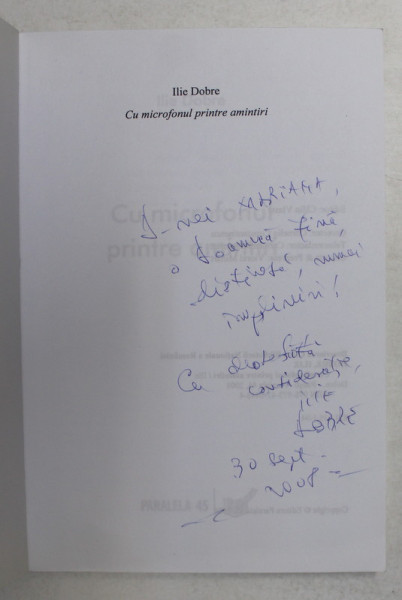 Ilie Dobre
Cu microfonul printre amintiri
D-nei MARIANA,
o doamnă fină,
distinsă, numai
împliniri!
Cu deosebită
considerație,
Ilie
DOBRE
30 sept.
2008
PARALELA 45